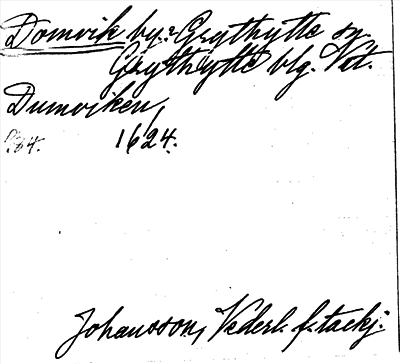 Domvik by: Grythytte sn
Grythytte blg. Vst.
Dumviken,
1624.
Johansson, Nederl. f. tackj.